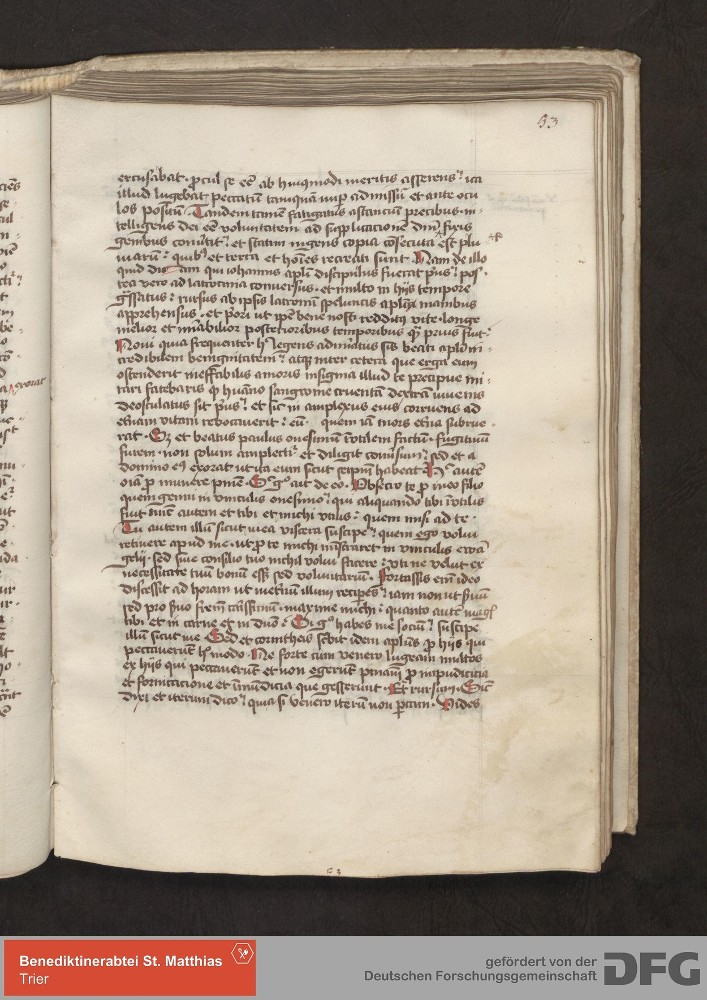 53
excusabat · ꝓcul se eē ab huiꝰmodi meritis asserens · ita
illud lugebat peccatū tanquā nuꝑ admissū et ante ocu
los positū · Tandem tamē fatigatus astanciū precibus · in
telligens dei eē voluntatem ad supplicacionē dn̄i fixis
genibus conūtit² · et statim ingens copia cōsecuta est plu
uiarū · quibꝫ et terra et hoīes recreati sunt · Nam de illo
quid dicam qui iohannis apl̄i discipulus fuerat pͥus · pos
tea vero ad latrocinia conuersus · et multo in hijs tempore
gͣssatus · rursus ab ipsis latronū speluncis apl̄icis manibus
apprehensus · et pori ut ipē bene nosti redditꝰ vite · longe
melior et mirabilior posterioribus temporibus qͣ prius fuit ·
Noui quia frequenter hͦ legens admiratus sis beati apl̄i in
credibilem benignitatem · atqꝫ inter cetera que erga eum
ostenderit ineffabilis amoris insignia illud te precipue mi
rari fatebaris ꝙ humano sanguine cruentā dexterā iuuenis
deosculatus sit pͥus · et sic in amplexus eius corruens ad
etͥnam vitam reuocauerit · eū · quem iā mors etͥna subrue
rat · Sꝫ et beatus paulus onesimū inutilem factū · fugitiuū
furem · non solum amplectit² et diligit conuersū · sed et a
domino eiꝰ exorat ut ita eum sicut seipm̄ habeat
Sic gͦ ait de eo · Obsecro te ꝓ meo filio
quem genui in vinculis onesimo · qui aliquando tibi inutilis
fuit nūc autem et tibi et michi utilis · quem misi ad te ·
Tu autem illū sicut mea viscera suscipe · quem ego volui
retinere apud me · ut ꝓ te michi ministraret in vinculis euwā
gelij · sed sine consilio tuo nichil volui facere · uti ne velut ex
necessitate tuū bonū esset sed voluntariū · Fortassis em̄ ideo
discessit ad horam ut inetͥnū illum recipes · iam non ut suū
sed pro suo frēm carissimū · maxime michi · quanto autē magͥ
tibi et in carne et in dn̄o · Si gͦ habes me sociū · suscipe
illū sicut me · Sed et corintheis scribit idem apl̄us ꝓ hijs qui
peccauerūt hͦ modo · Ne forte cum venero lugeam multos
ex hijs qui peccauerūt et non egerūt pniam ꝓ inpudicicia
et fornicacione et inmūdicia que gesserunt · Et rursum · Sicut
dixi et iterum dico · quia si venero iterū non parcam · Vides
Benediktinerabtei St. Matthias
Trier
gefördert von der
Deutschen Forschungsgemeinschaft
DFG